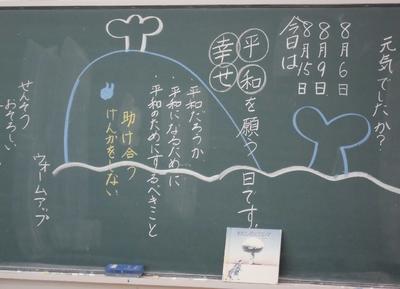 元気でしたか？
8月6日
8月9日
8月15日
今日は
平和を願う日です。
幸せ
・平和だろうか
・平和になるために
・平和のためにするべきこと
助け合う
けんかをしない
ウォームアップ
せんそう
おそろしい